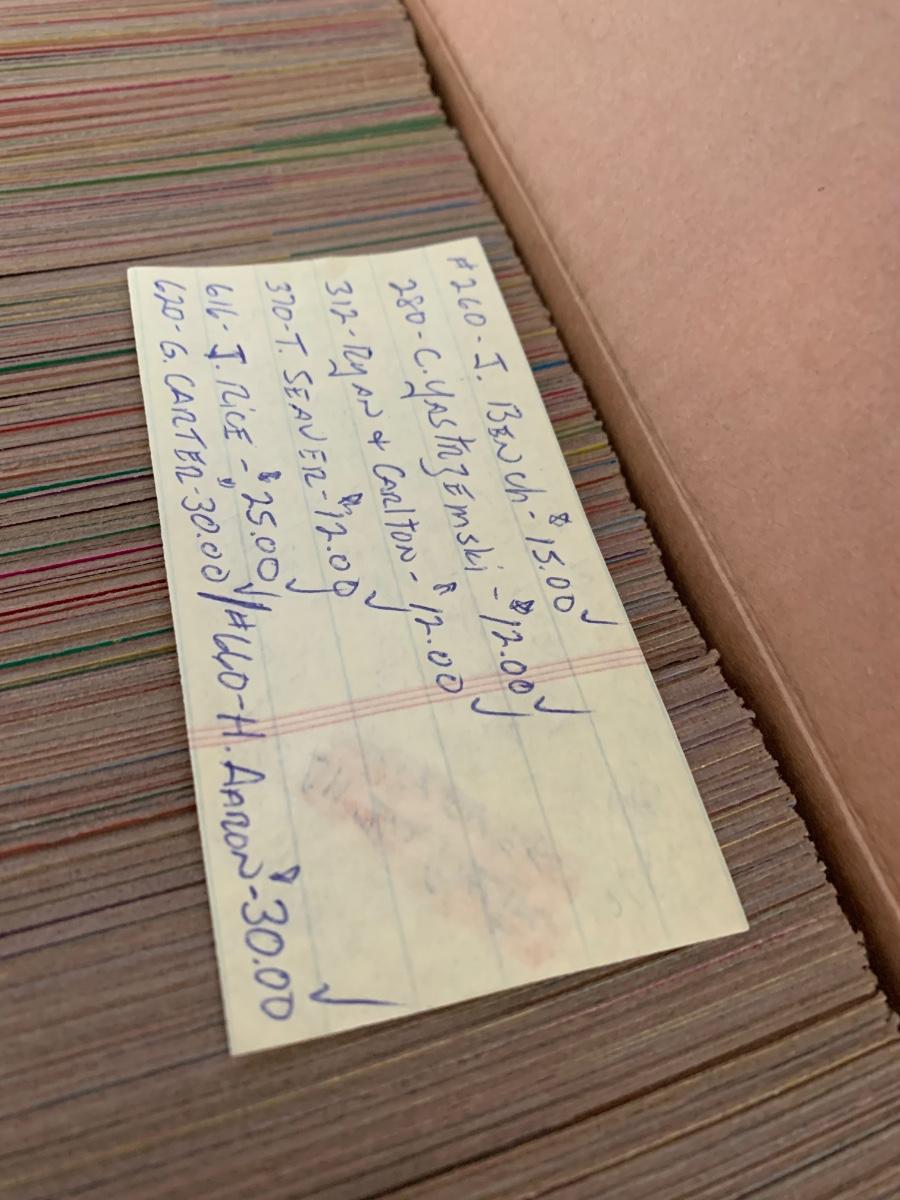 #260 - J. BENCh - $15.00 ✓
280 - C. YASTRZEMSKi - $12.00 ✓
312 - RyAN & CARlTON - $12.00 ✓
370 - T. SEAVER - $12.00 ✓
616 - J. RICE - $25.00 ✓
620 - G. CARTER - 30.00 ✓/#660 - H. AARON - $30.00 ✓